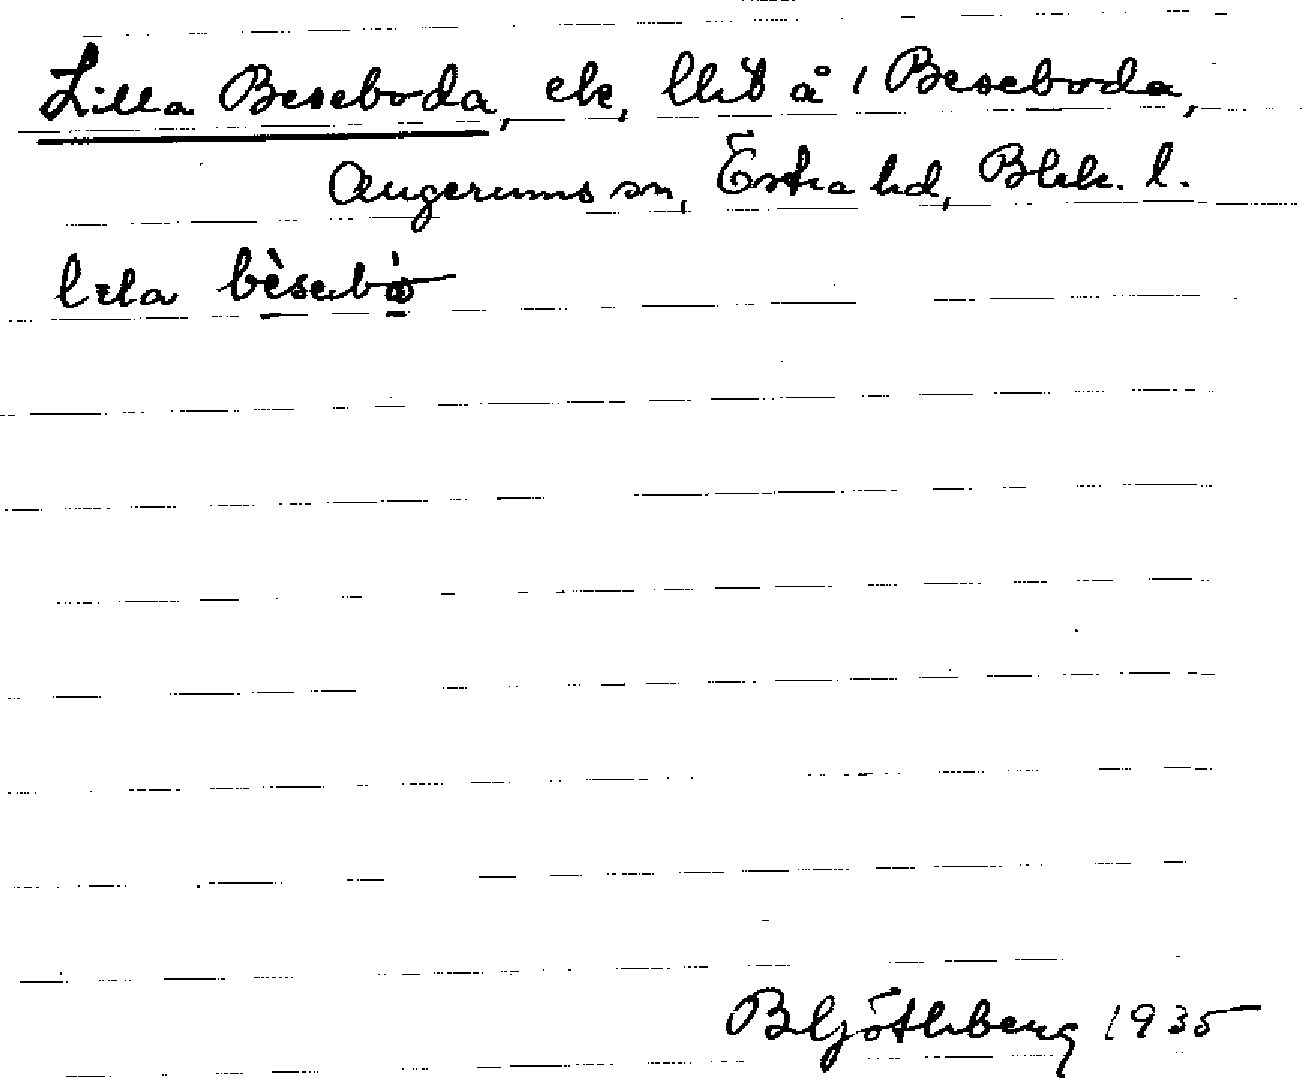 Lilla Beseboda, ek, lht å 1 Beseboda,
Augerums sn, Östra hd, Blek. l.
lila bèsebò
B Götlberg 1935